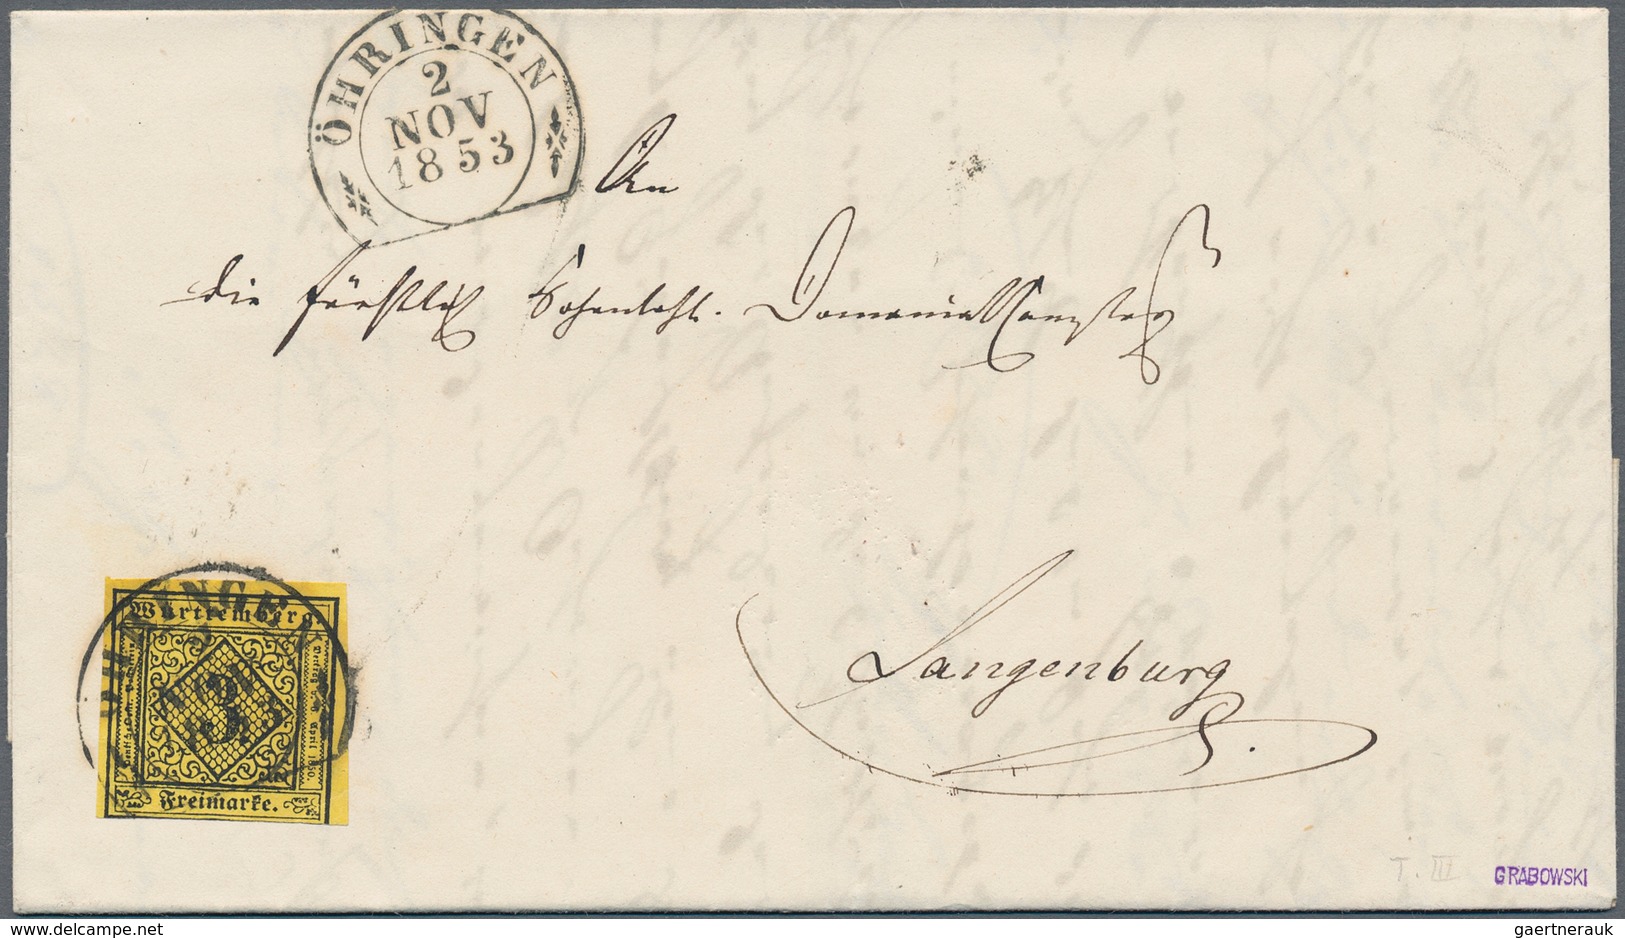 ÖHRINGEN
2
NOV
1853
An
die fürstlich Hohenlohe. Domanialkanzley
Langenburg
Württemberg.
3
Freimarke.
T. III
GRABOWSKI
gaertnerauk